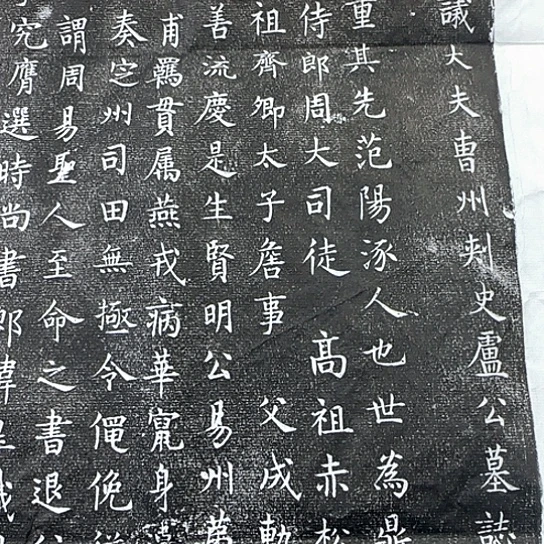 議大夫曹州刾史盧公墓誌
重其先范陽涿人也世為鼎
侍郎周大司徒 高祖赤松
祖齊卿太子詹事 父成軌
善流慶是生賢明公易州萬
甫羈貫属燕戎病華寵身
奏定州司田無極令僶俛從
謂周易聖人至命之書退
究膺選時尚書郎韋